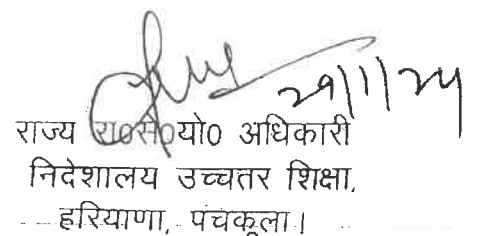 29/1/24
राज्य रा०से०यो० अधिकारी
निदेशालय उच्चतर शिक्षा,
हरियाणा, पंचकूला।